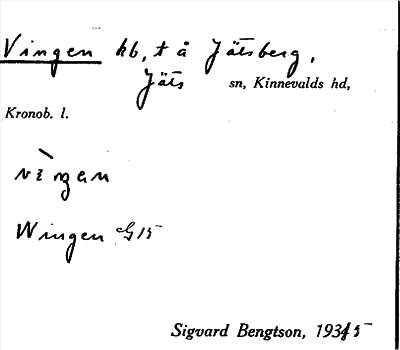 Vingen hb, t å Jätsberg,
Jäts sn, Kinnevalds hd,
Kronob. l.
vìŋən
Wingen G 15
Sigvard Bengtson, 1935